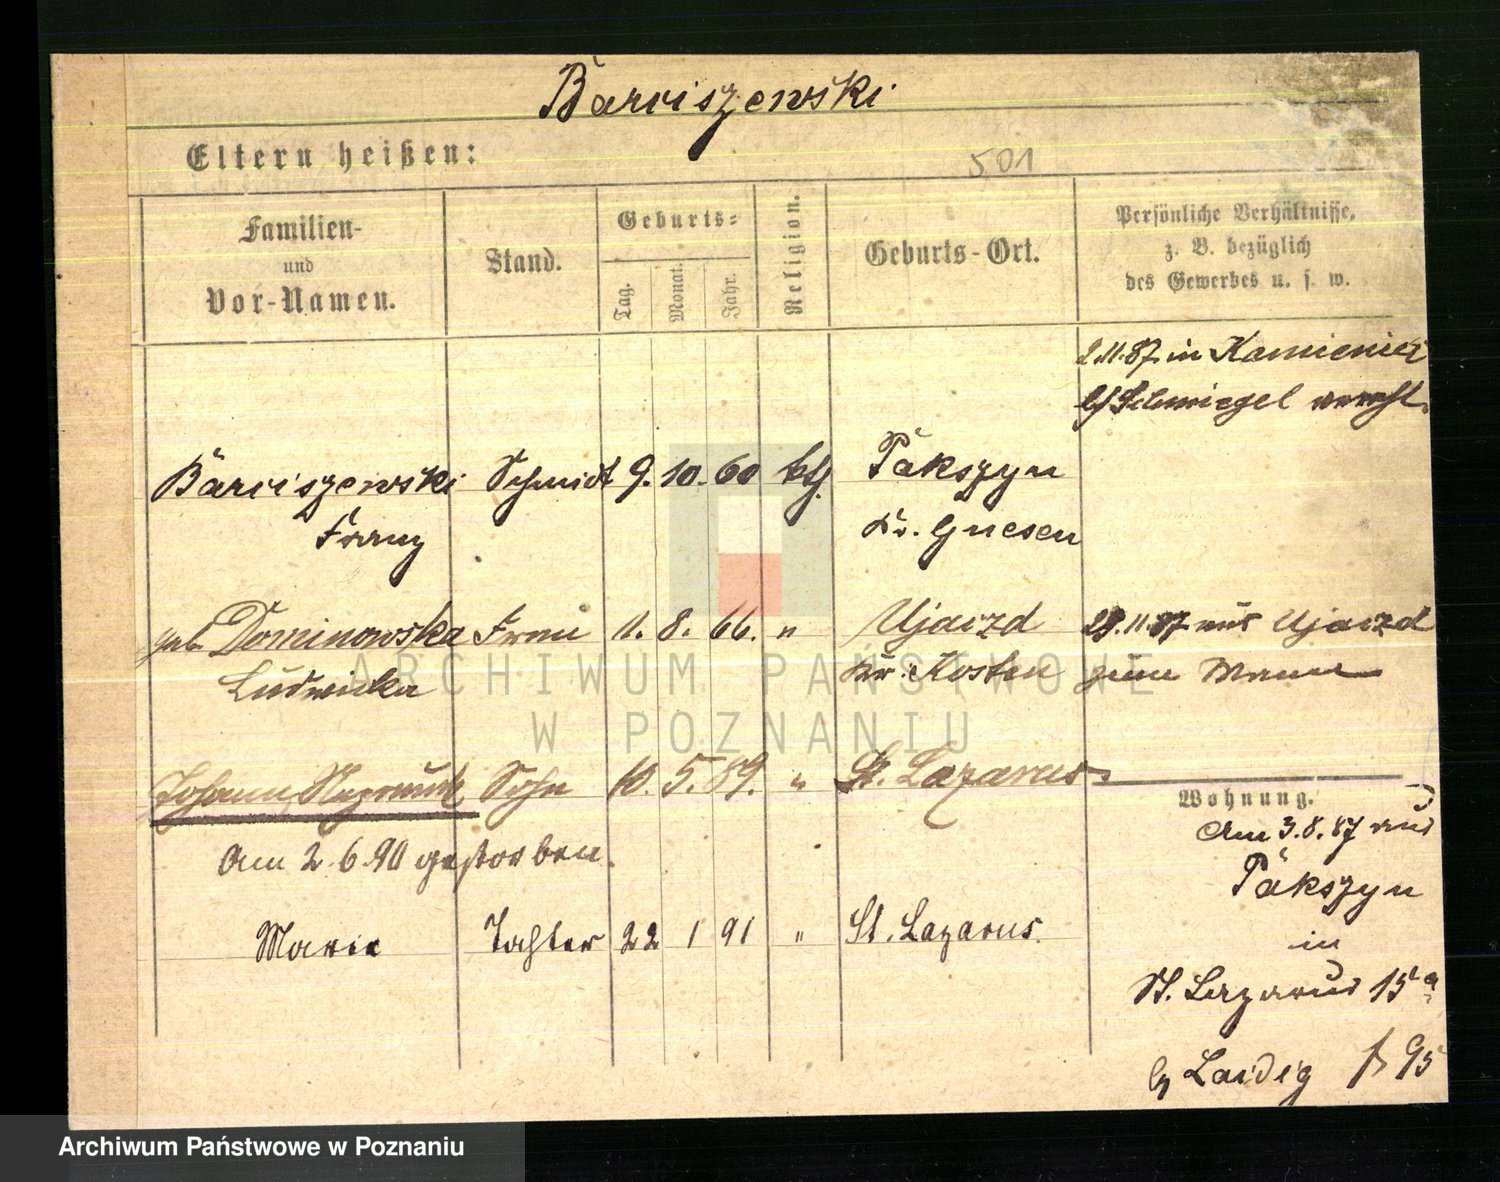 Barciszewski
Eltern heißen:
501
Familien-
und
Vor-Namen.
Stand.
Geburts-
Tag.
Monat.
Jahr.
Religion.
Geburts-Ort.
Persönliche Verhältnisse,
z. B. bezüglich
des Gewerbes u. s. w.
2.11.87 in Kamieniec
b/ Schmiegel
Barciszewski Schmidt 9. 10. 60 kth. Pakszyn
Franz Kr. Gnesen
geb. Dominowska Frau 11. 8. 66. " Ujaizd 29.11.87 aus Ujaizd
Ludwika Kr. Kosten zum Manne
Johann Nepomuk Sohn 10. 5. 89. " St. Lazarus
Am 2.6.90 gestorben.
Marie Tochter 22 1 91 " St. Lazarus.
Wohnung.
Am 3.8.87 aus
Pakszyn
in
St. Lazarus 15a
Laidig 95
ARCHIWUM PAŃSTWOWE
W POZNANIU
Archiwum Państwowe w Poznaniu